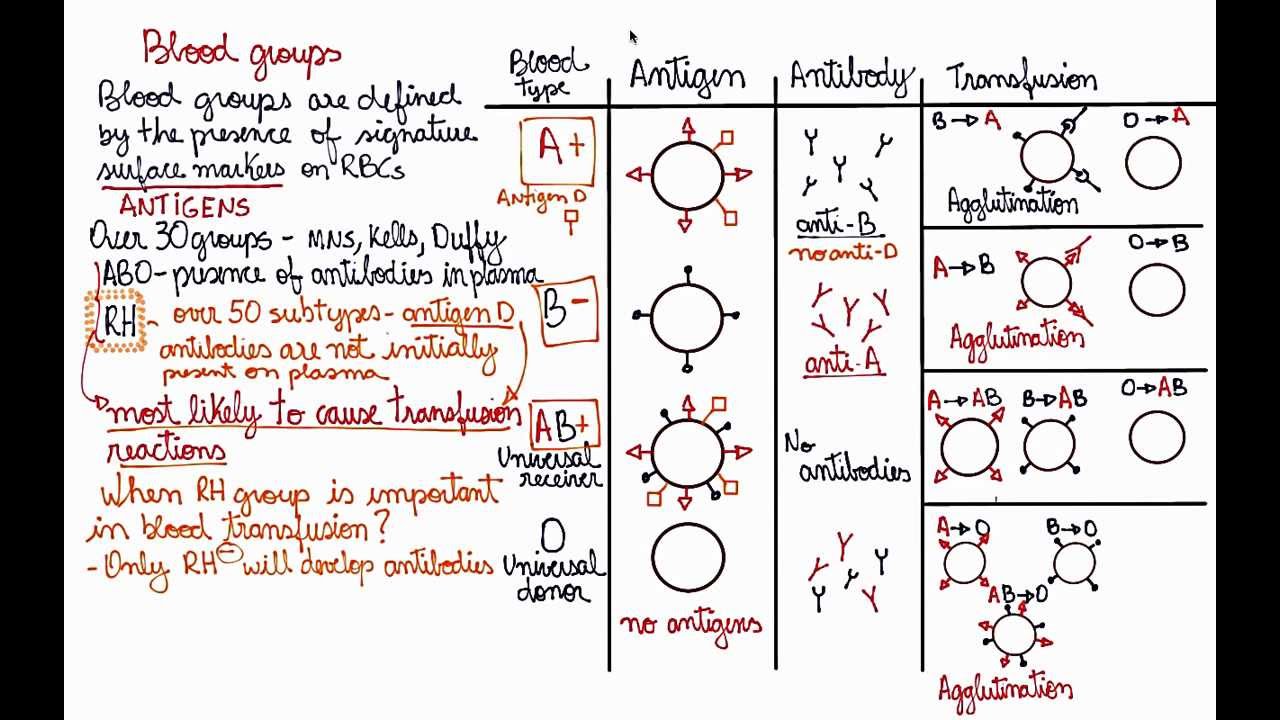 Blood groups
Blood groups are defined
by the presence of signature
surface markers on RBCs
ANTIGENS
Over 30 groups - MNS, Kells, Duffy
ABO - presence of antibodies in plasma
RH - over 50 subtypes - antigen D
antibodies are not initially
present on plasma
most likely to cause transfusion
reactions
When RH group is important
in blood transfusion?
- Only RH⊖ will develop antibodies
Blood
type
Antigen
Antibody
Transfusion
A+
Antigen D
anti-B
no anti-D
B→A
O→A
Agglutination
B-
anti-A
A→B
O→B
Agglutination
AB+
Universal
receiver
No
antibodies
A→AB
B→AB
O→AB
O
Universal
donor
no antigens
A→O
B→O
AB→O
Agglutination